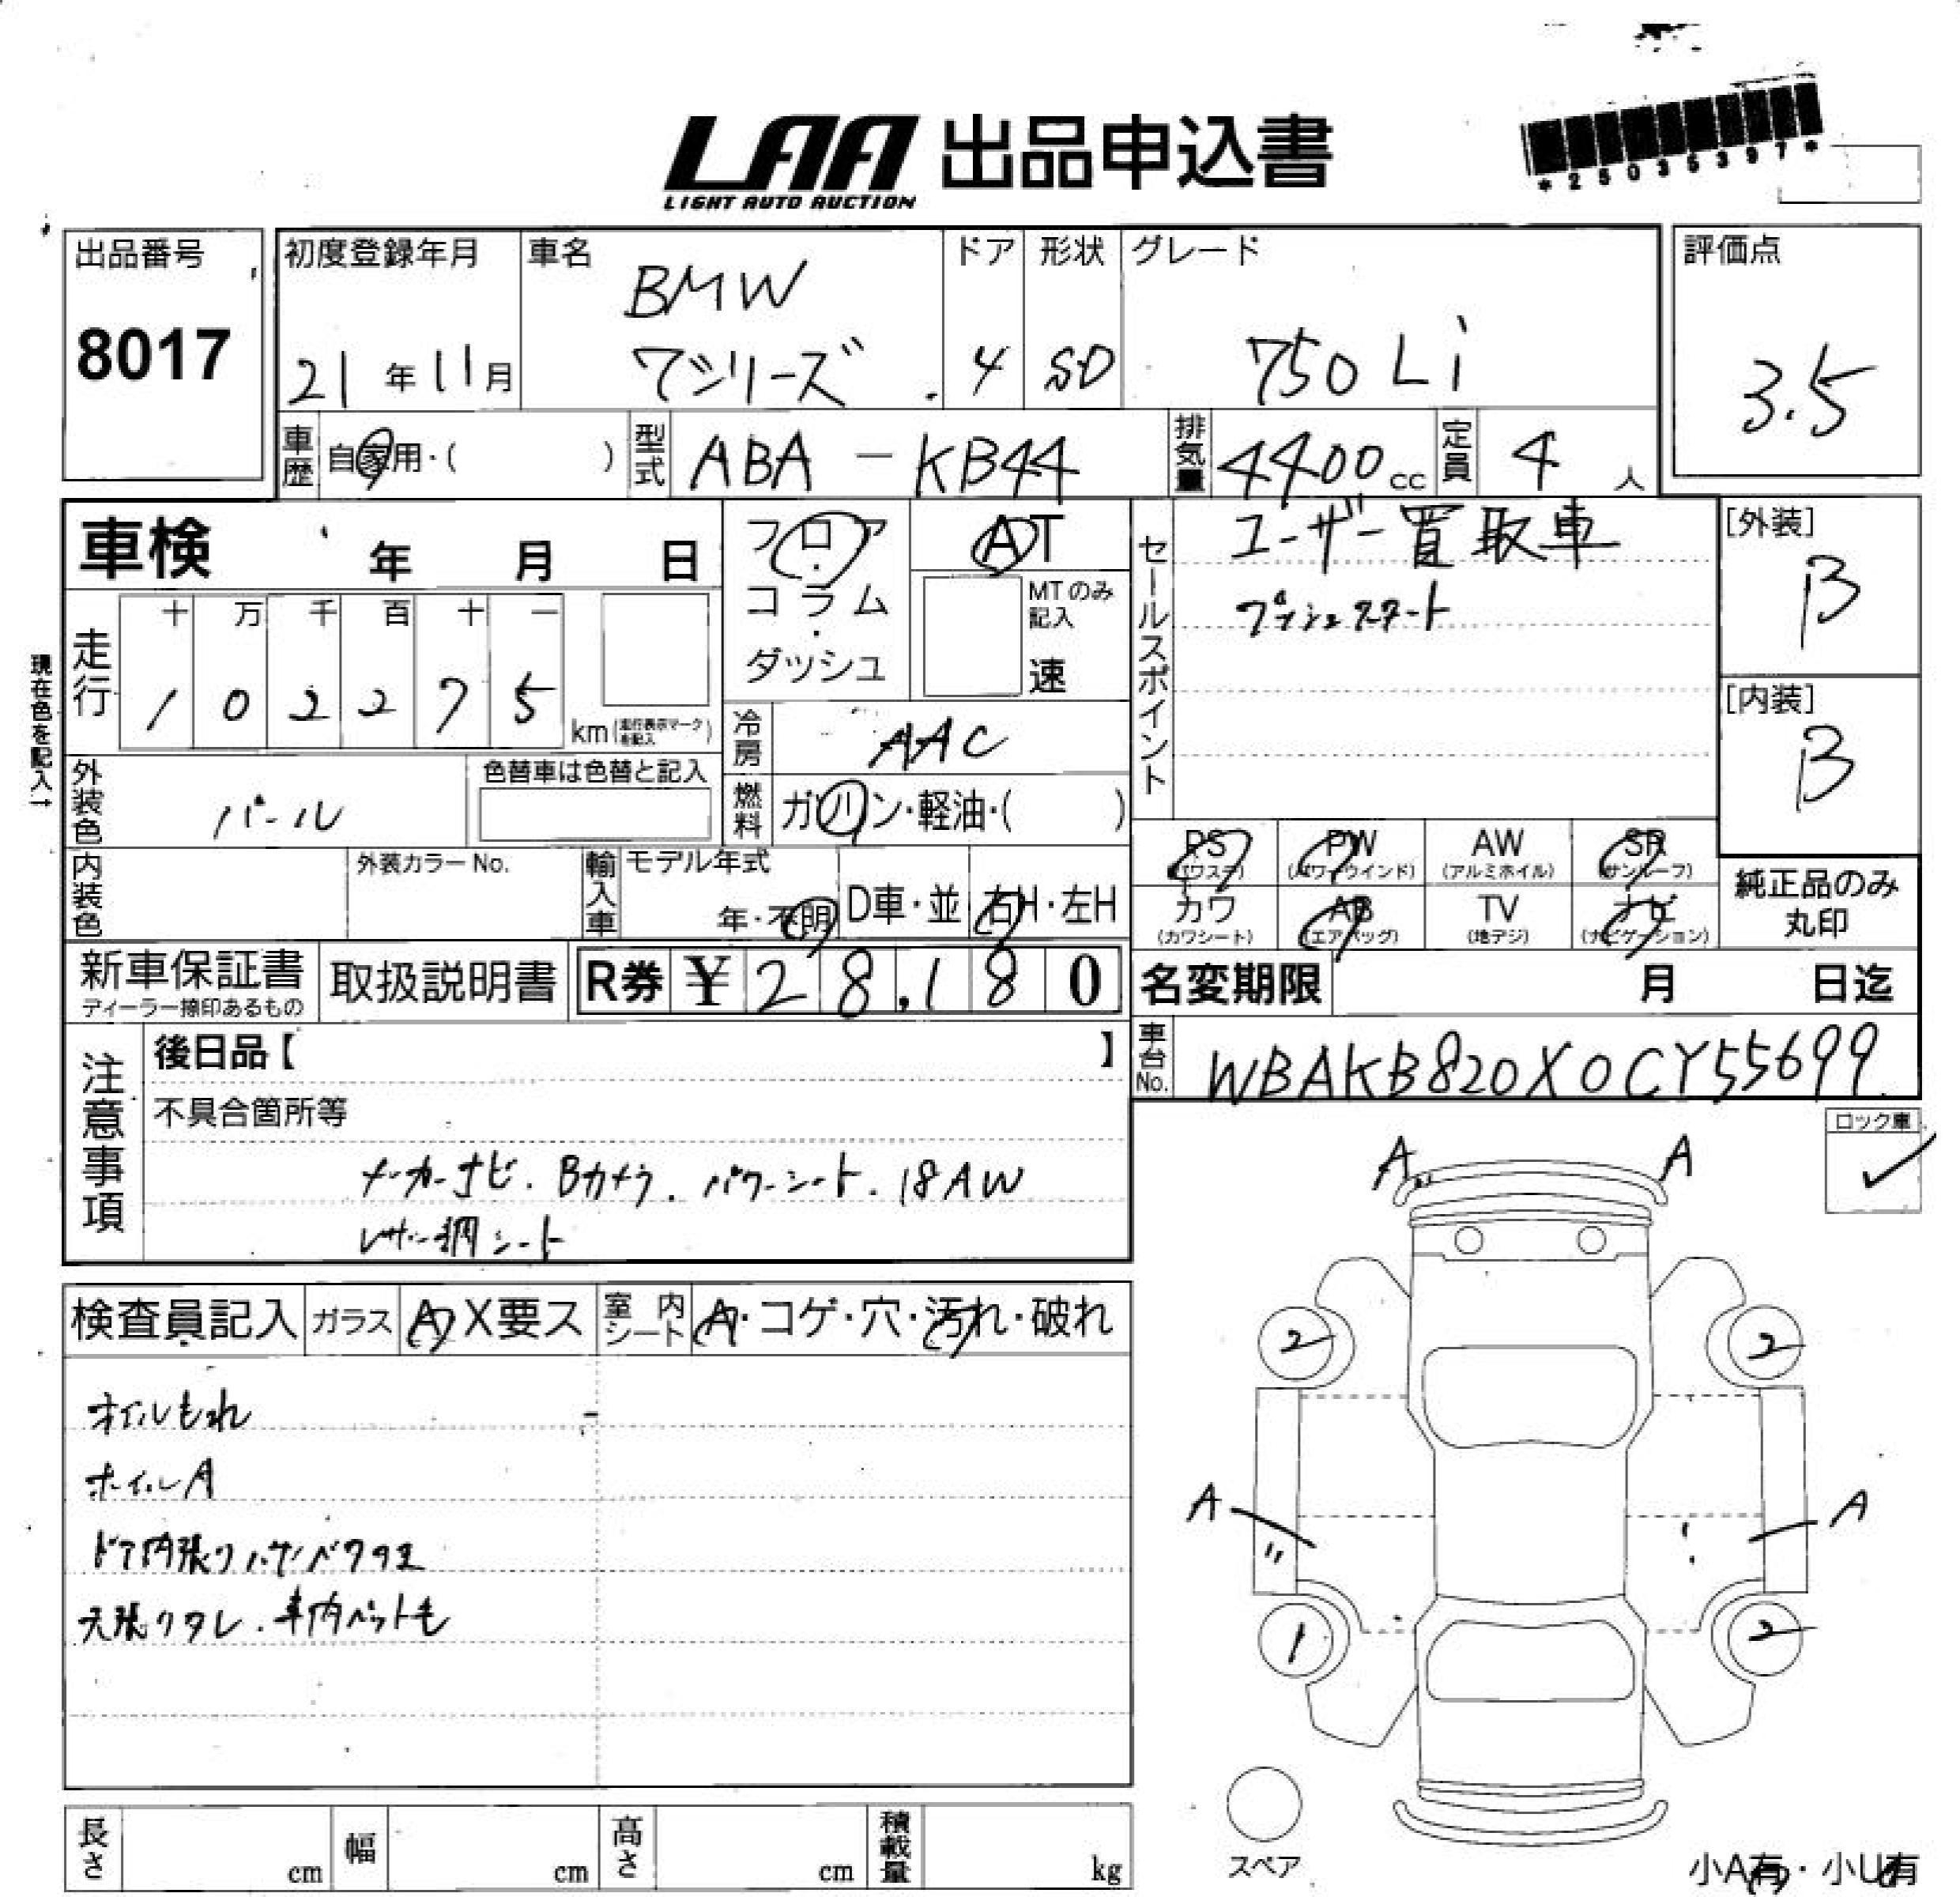 *25035397*
LAA 出品申込書
LIGHT AUTO AUCTION
出品番号
8017
初度登録年月
21年11月
車名
BMW
7シリーズ
ドア
4
形状
SD
グレード
750Li
評価点
3.5
車歴
自家用・( )
型式
ABA-KB44
排気量
4400cc
定員
4人
車検 年 月 日
フロア・コラム・ダッシュ
AT
MTのみ記入
速
セールスポイント
ユーザー買取車
プッシュスタート
[外装]
B
[内装]
B
現在色を記入→
走行
十 万 千 百 十 一
1 0 2 2 7 5
km(走行表示マークを記入)
冷房
AAC
外装色
パール
色替車は色替と記入
燃料
ガソリン・軽油・( )
PS
(パワステ)
PW
(パワーウインド)
AW
(アルミホイル)
SR
(サンルーフ)
内装色
外装カラーNo.
輸入車
モデル年式
年・不明
D車・並
右H・左H
カワ
(カワシート)
AB
(エアバッグ)
TV
(地デジ)
ナビ
(ナビゲーション)
純正品のみ
丸印
新車保証書
ディーラー捺印あるもの
取扱説明書
R券 ¥28,180
名変期限 月 日迄
車台No.
WBAKB820X0CY55699
注意事項
後日品【 】
不具合箇所等
メーカーナビ. Bカメラ. パワーシート. 18AW
レザー調シート
ロック車
✓
A A
検査員記入
ガラス A X要ス
室内シート A・コゲ・穴・汚れ・破れ
オイルもれ
ホイルA
ドア内張りハガレ
天張りタレ.車内ペット毛
2 2
A A
〃
1 2
スペア
小A有・小U有
長さ cm
幅 cm
高さ cm
積載量 kg